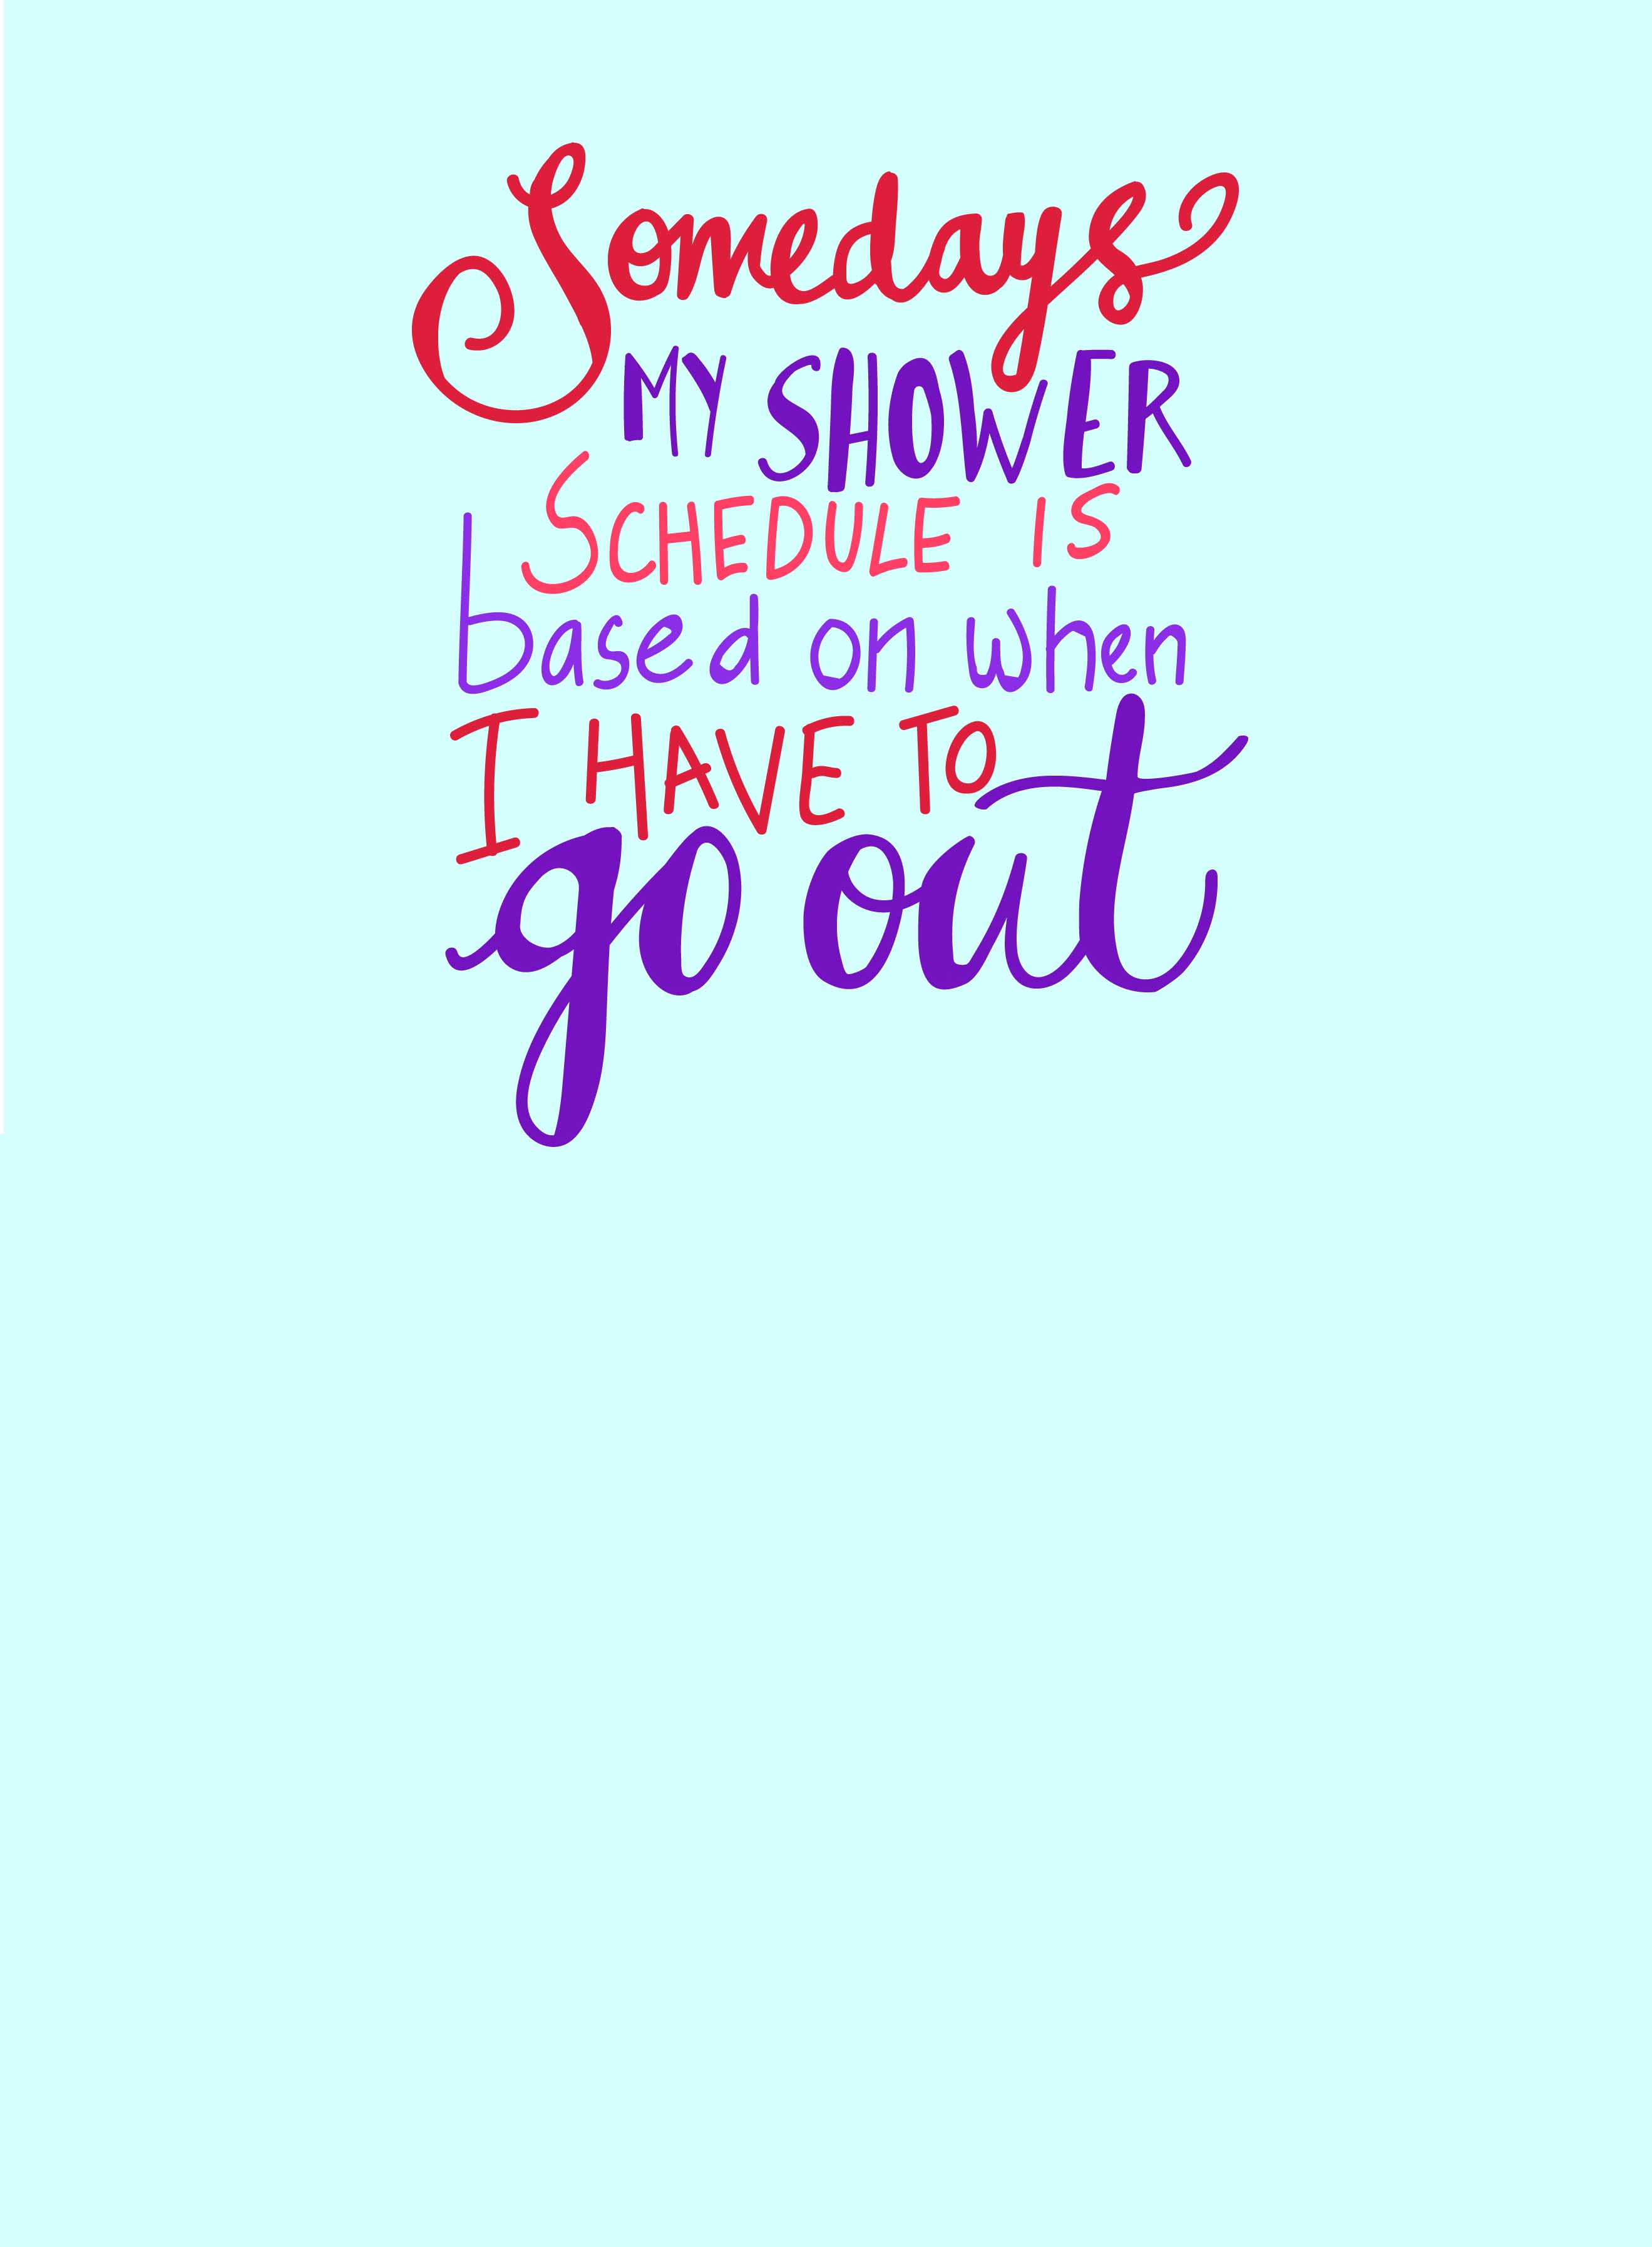 Somedays
MY SHOWER
SCHEDULE IS
based on when
I HAVE TO
go out